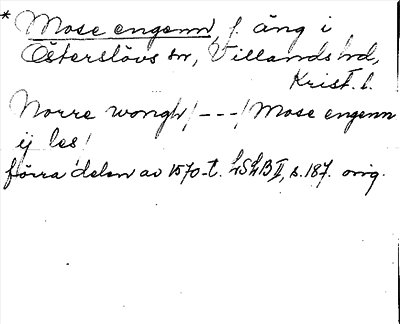 * Mose engenn, f. äng i
Österslövs sn, Villands hd,
Krist. l.
Norre wongh/ --- / Mose engenn
ij les/
förra delen av 1570-t. LSLB II, s. 187. orig.